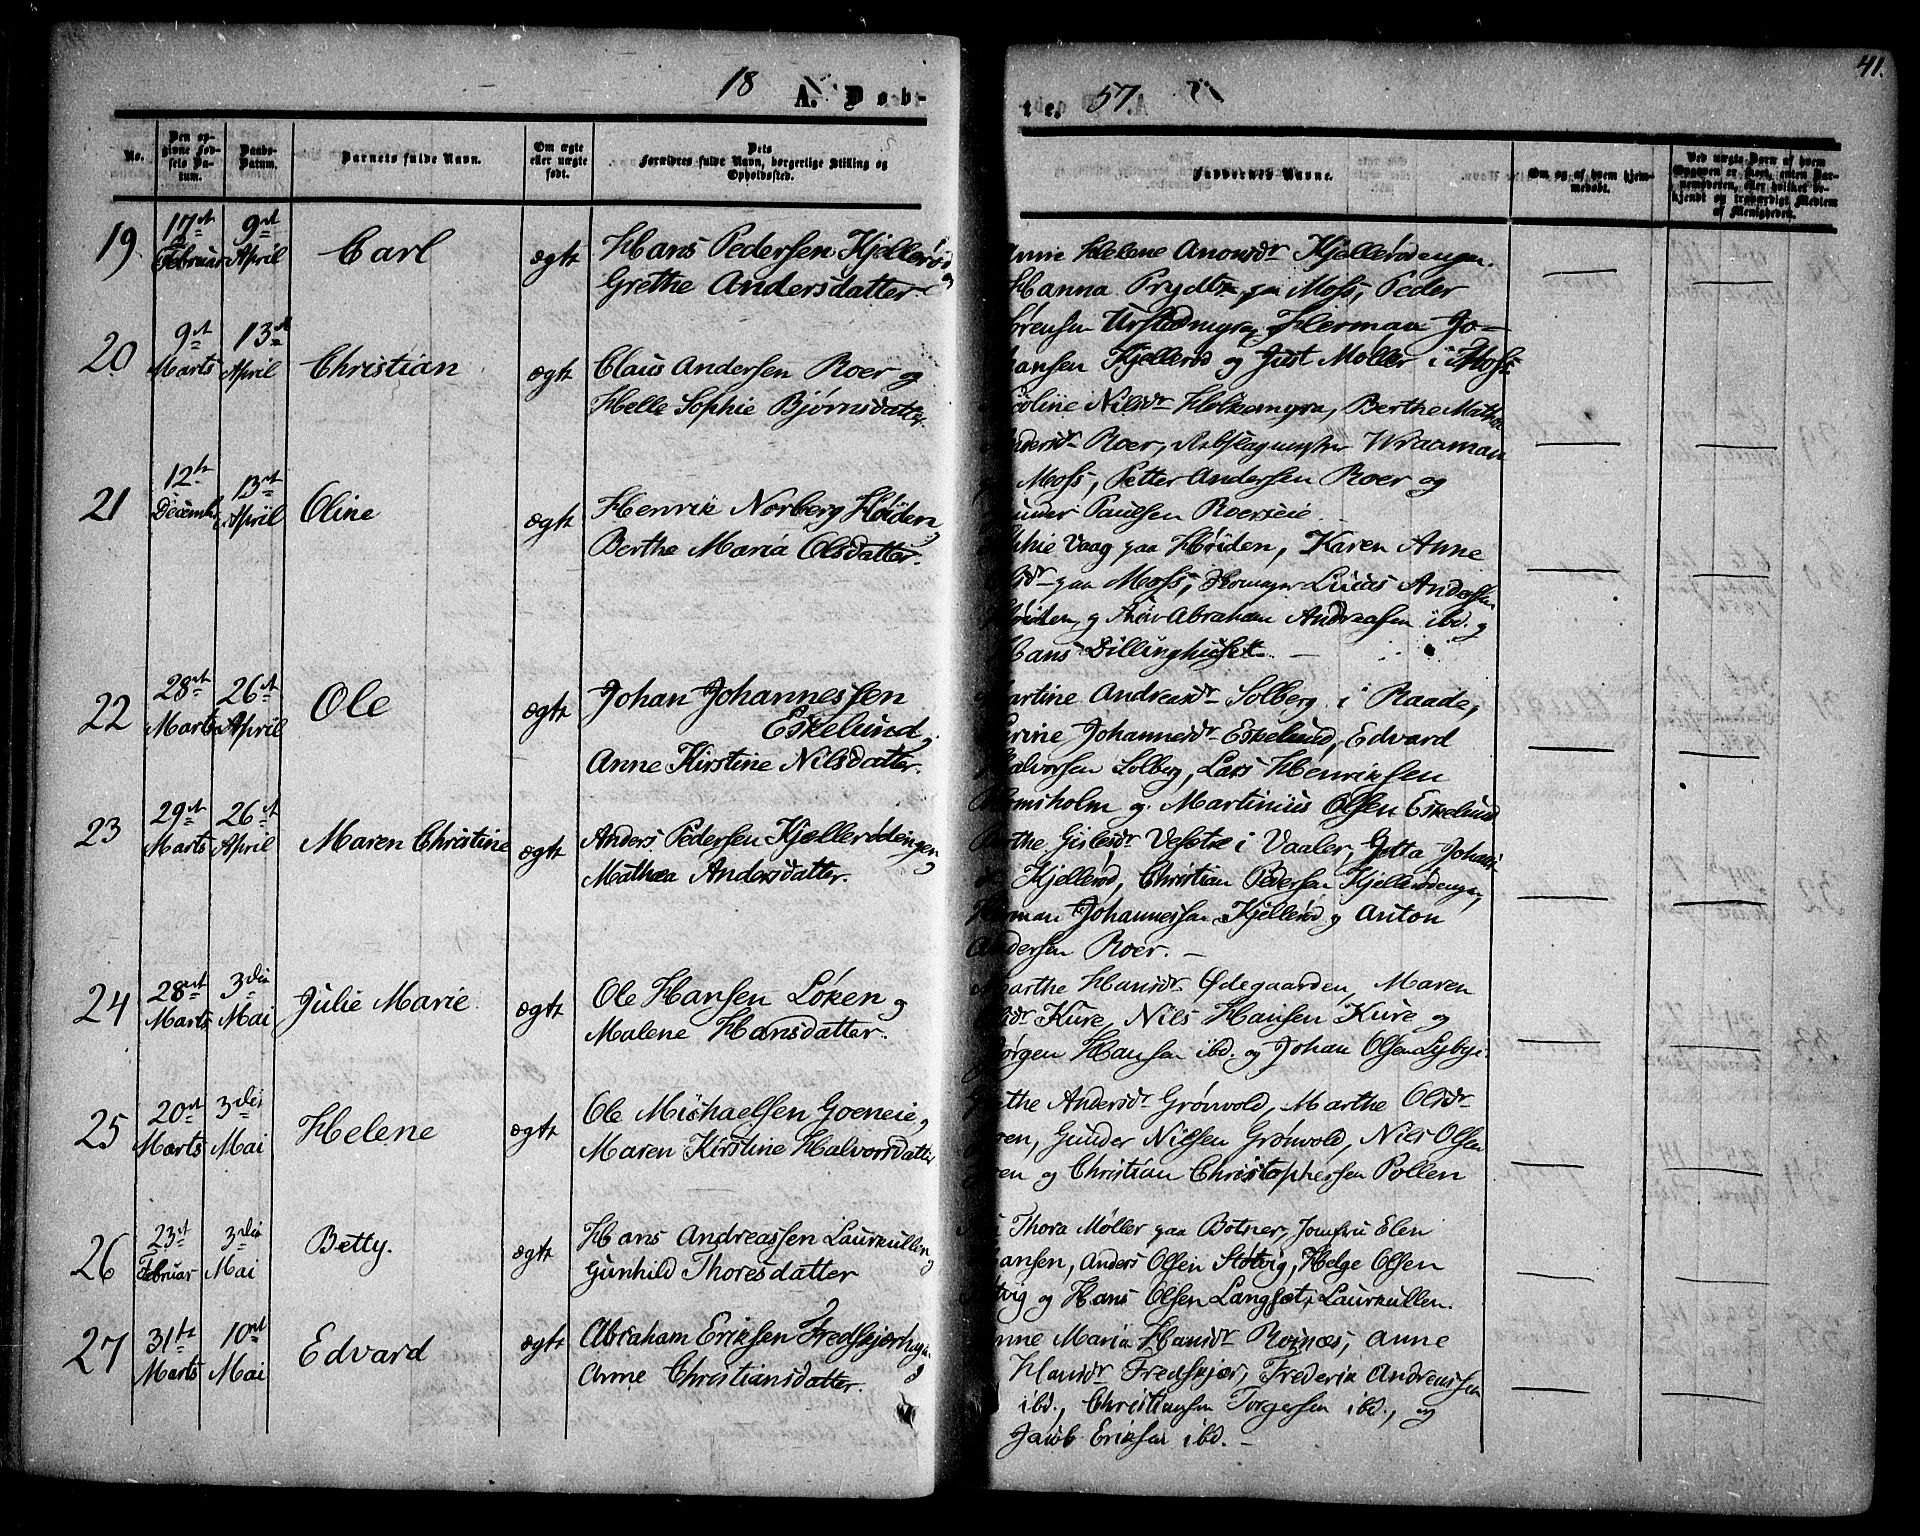 41.
18 A. Døb-
te. 57
No.
Den op-
givne Fød-
sels Da-
tum.
Daabs-
Datum.
Barnets fulde Navn.
Om ægte
eller uægte
født.
Dets
Forældres fulde Navn, borgerlige Stilling og
Opholdssted.
Faddernes Navne.
Om og af hvem hjem-
medøbt.
Ved uægte Børn af hvem
Opgaven er skeet, enten Bar-
nemoderen, eller hvilket be-
kjendt og troværdigt Medlem
af Menigheden.
19 17de Februar 9de April Carl ægte Hans Pedersen Kjellerød og
Grethe Andersdatter.
Anne Helene Kjellerødengen.
Hanna Prydtz paa Moss, Peder
Sørensen Herman Jo-
hansen Kjellerød og Just Møller i Moss
20 9de Marts 13de April Christian ægte Claus Andersen Roer og
Helle Sophie Bjørnsdatter
Nilsdr Berthe Mathea
Andersdr Roer, Wraaman
Moss, Petter Andersen Roer og
Gunder Paulsen Roereie.
21 12te December 13de April Oline ægte Henrik Norberg Høiden og
Berthe Maria Olsdatter.
Sophie Vaag paa Høiden, Karen Anne
paa Moss, Lucas Andersen
Høiden, og Abraham Andreasen ibd. og
Hans Dillinghuset. —
22 28de Marts 26de April Ole ægte Johan Johannessen
Eskelund,
Anne Kirstine Nilsdatter.
Martine Andreasdr Solberg i Raade,
Johannesdr Eskelund, Edvard
Halvorsen Solberg, Lars Henriksen
og Martinius Olsen Eskelund
23 29de Marts 26de April Maren Christine ægte Anders Pedersen Kjellerødengen og
Mathea Andersdatter.
Berthe i Vaaler,
Kjellerød, Christian Pedersen Kjellerødengen,
Herman Johannesen Kjellerød og Anton
Andersen Roer. —
24 28de Marts 3die Mai Julie Marie ægte Ole Hansen Løken og
Malene Hansdatter.
Marthe Hansdr Ødegaarden, Maren
Kure, Nils Hansen Kure og
Jørgen Hansen ibd. og Johan Olsen
25 20de Marts 3die Mai Helene ægte Ole Michaelsen Goeneie,
Maren Kirstine Halvorsdatter
Grethe Andersdr Grønvold, Marthe Olsdr
Gunder Nilsen Grønvold, Nils Olsen
og Christian Christophersen Pollen
26 23de Februar 3die Mai Betty. ægte Hans Andreassen Laurkullen og
Gunhild Thoresdatter
Thora Møller paa Botner, Jomfru Elen
Hansen, Anders Olsen Støtvig, Helge Olsen
Støtvig og Hans Olsen Langsæt, Laurkullen.
27 31te Marts 10de Mai Edvard ægte Abraham Eriksen
Anne Christiansdatter.
Anne Maria Hansdr Roznæs, Anne
Hansdr Fredskjær, Frederik Andreassen
ibd., Christiansen Torgersen ibd., og
Jacob Eriksen ibd. —